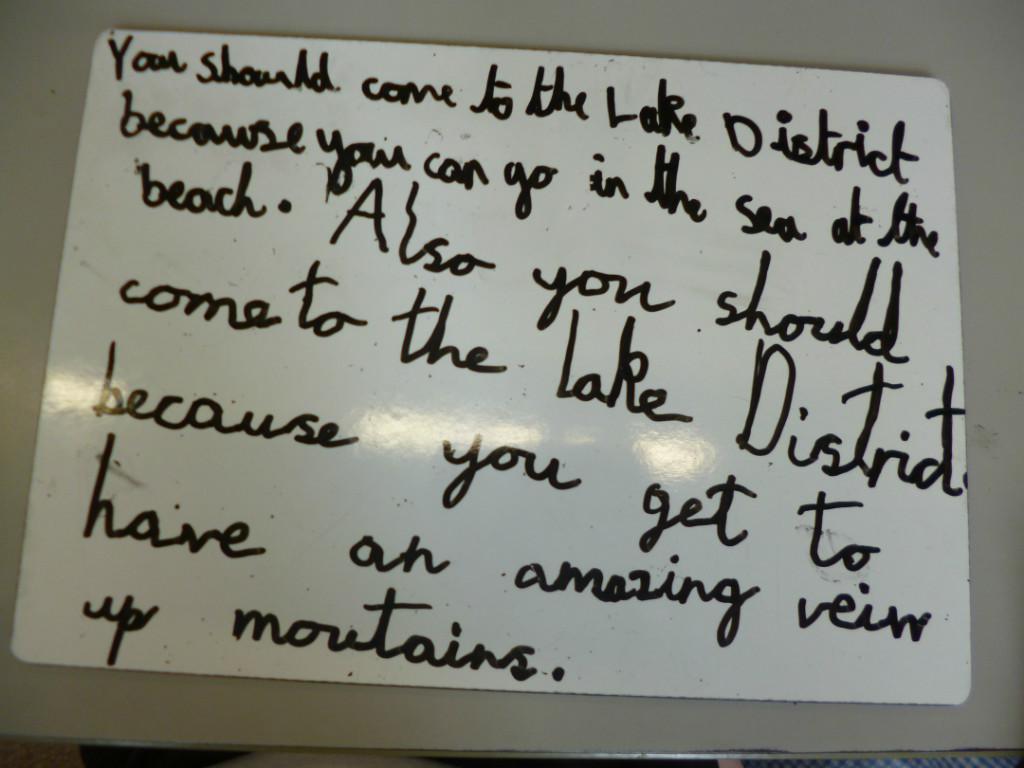 You should come to the Lake District
because you can go in the sea at the
beach. Also you should
come to the Lake District
because you get to
have an amazing veiw
up moutains.